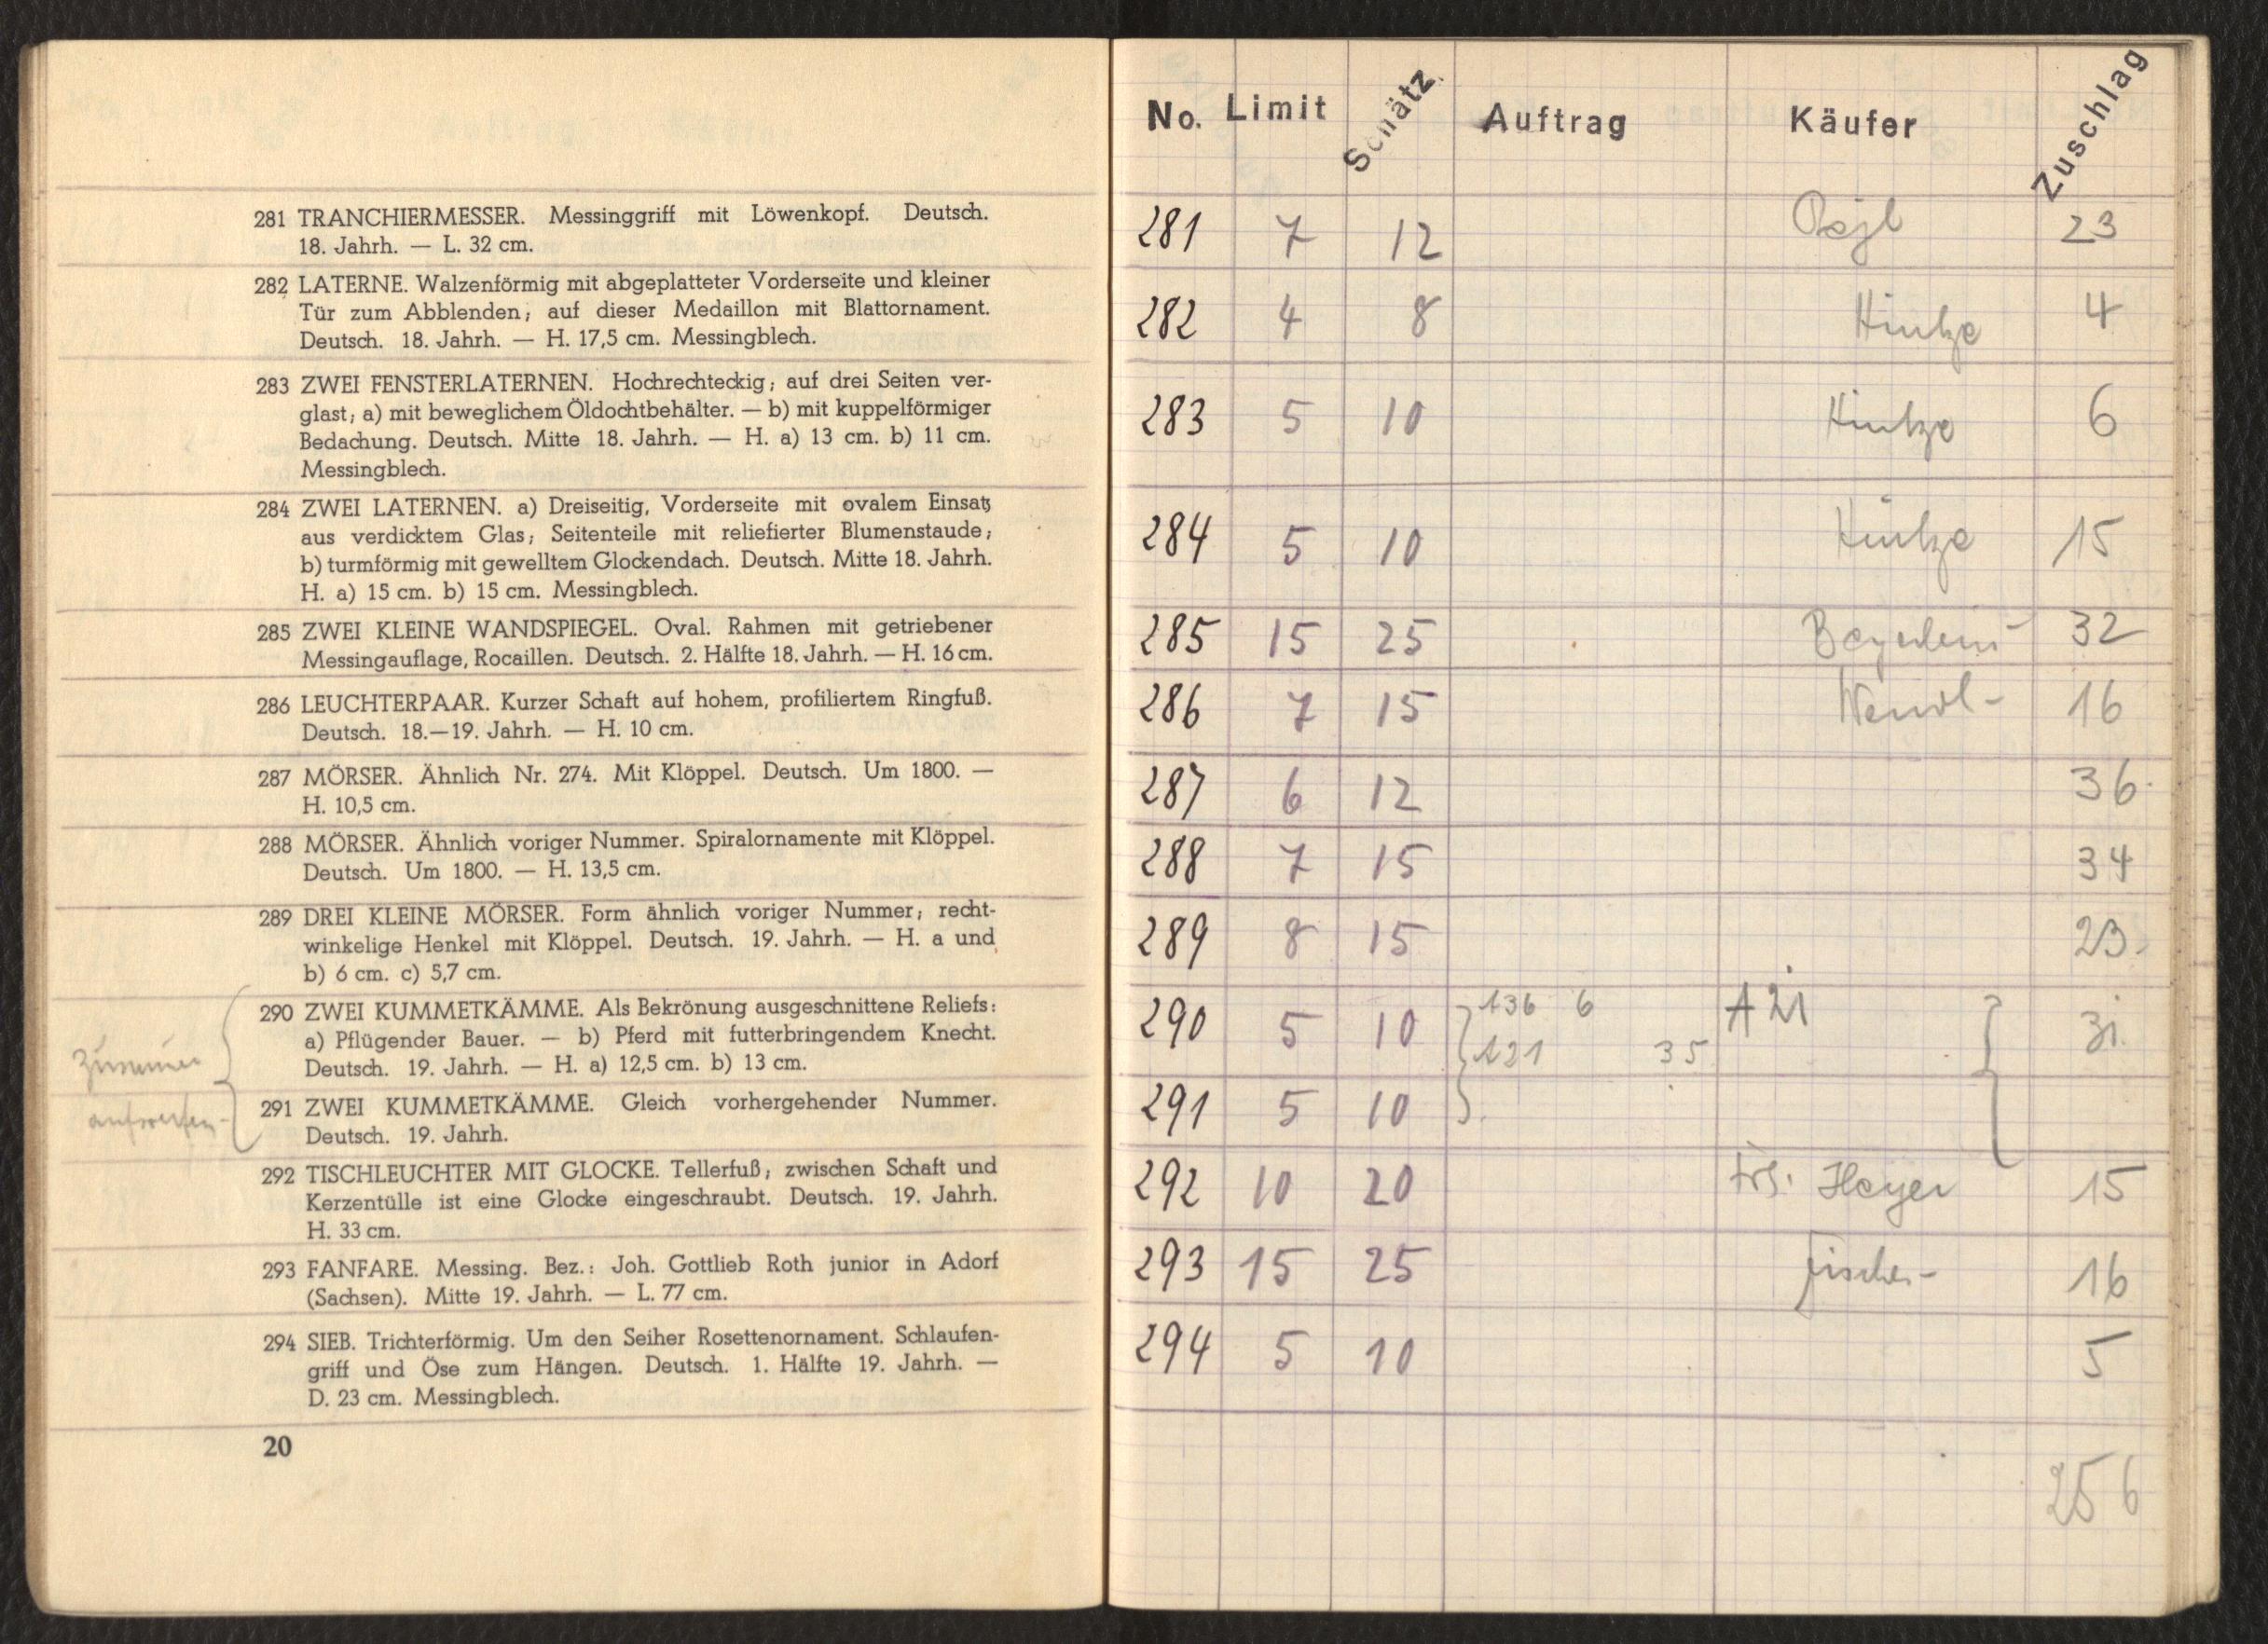 281 TRANCHIERMESSER. Messinggriff mit Löwenkopf. Deutsch.
18. Jahrh. — L. 32 cm.
282 LATERNE. Walzenförmig mit abgeplatteter Vorderseite und kleiner
Tür zum Abblenden; auf dieser Medaillon mit Blattornament.
Deutsch. 18. Jahrh. — H. 17,5 cm. Messingblech.
283 ZWEI FENSTERLATERNEN. Hochrechteckig; auf drei Seiten ver-
glast; a) mit beweglichem Öldochtbehälter. — b) mit kuppelförmiger
Bedachung. Deutsch. Mitte 18. Jahrh. — H. a) 13 cm. b) 11 cm.
Messingblech.
284 ZWEI LATERNEN. a) Dreiseitig, Vorderseite mit ovalem Einsatz
aus verdicktem Glas; Seitenteile mit reliefierter Blumenstaude;
b) turmförmig mit gewelltem Glockendach. Deutsch. Mitte 18. Jahrh.
H. a) 15 cm. b) 15 cm. Messingblech.
285 ZWEI KLEINE WANDSPIEGEL. Oval. Rahmen mit getriebener
Messingauflage, Rocaillen. Deutsch. 2. Hälfte 18. Jahrh. — H. 16 cm.
286 LEUCHTERPAAR. Kurzer Schaft auf hohem, profiliertem Ringfuß.
Deutsch. 18.—19. Jahrh. — H. 10 cm.
287 MÖRSER. Ähnlich Nr. 274. Mit Klöppel. Deutsch. Um 1800. —
H. 10,5 cm.
288 MÖRSER. Ähnlich voriger Nummer. Spiralornamente mit Klöppel.
Deutsch. Um 1800. — H. 13,5 cm.
289 DREI KLEINE MÖRSER. Form ähnlich voriger Nummer; recht-
winkelige Henkel mit Klöppel. Deutsch. 19. Jahrh. — H. a und
b) 6 cm. c) 5,7 cm.
290 ZWEI KUMMETKÄMME. Als Bekrönung ausgeschnittene Reliefs:
a) Pflügender Bauer. — b) Pferd mit futterbringendem Knecht.
Deutsch. 19. Jahrh. — H. a) 12,5 cm. b) 13 cm.
291 ZWEI KUMMETKÄMME. Gleich vorhergehender Nummer.
Deutsch. 19. Jahrh.
292 TISCHLEUCHTER MIT GLOCKE. Tellerfuß; zwischen Schaft und
Kerzentülle ist eine Glocke eingeschraubt. Deutsch. 19. Jahrh.
H. 33 cm.
293 FANFARE. Messing. Bez.: Joh. Gottlieb Roth junior in Adorf
(Sachsen). Mitte 19. Jahrh. — L. 77 cm.
294 SIEB. Trichterförmig. Um den Seiher Rosettenornament. Schlaufen-
griff und Öse zum Hängen. Deutsch. 1. Hälfte 19. Jahrh. —
D. 23 cm. Messingblech.
20
No. Limit Schätz. Auftrag Käufer Zuschlag
281 7 12 23
282 4 8 Hintze 4
283 5 10 Hintze 6
284 5 10 Hintze 15
285 15 25 32
286 7 15 16
287 6 12 36
288 7 15 34
289 8 15 23
290 5 10 136 6 A 21 31
121 35
291 5 10
292 10 20 15
293 15 25 Fischer 16
294 5 10 5
256